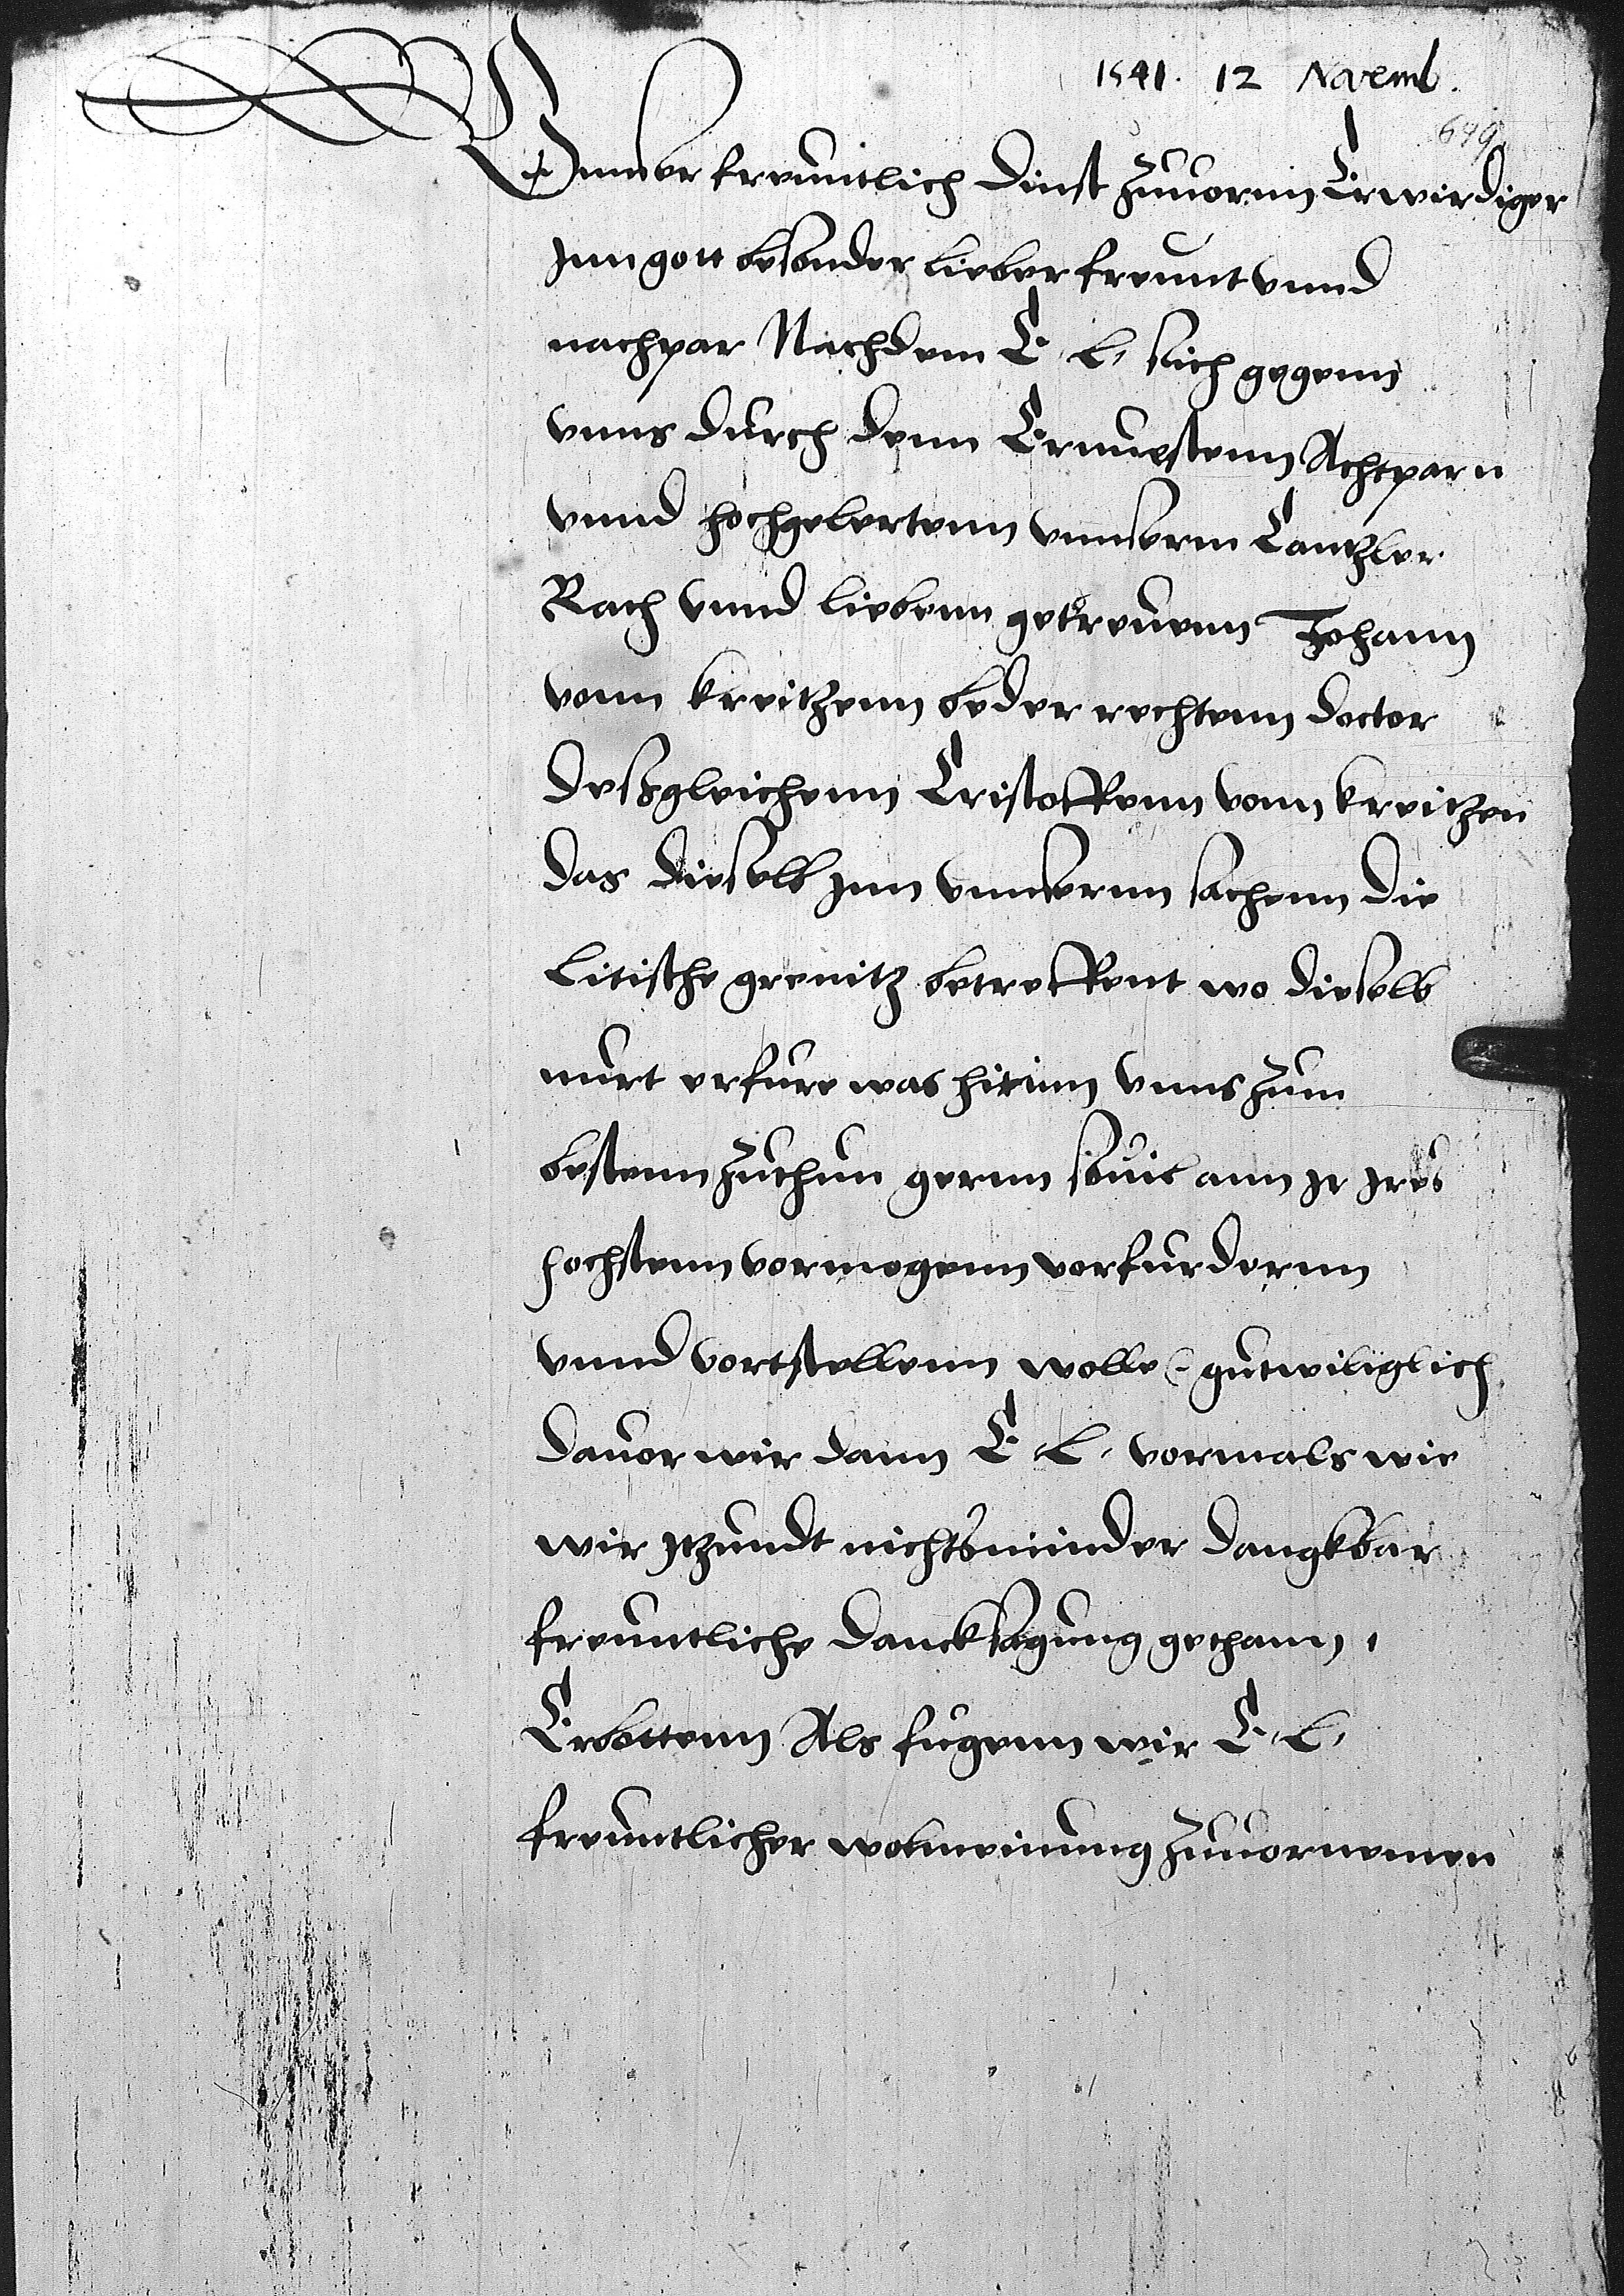 1541. 12 Novemb.
649
Vnnser freuntlich dinst zuuornn Erwirdiger
Jnn gott besonder lieber freunt vnnd
nachpar Nachdem E. L. sich gegenn
vnns durch denn Ernuestenn Achtparn
vnnd hochgelertenn vnnserm Cantzler
Rath vnnd liebenn getreuenn Johann
vonn Kreitzenn beder rechtenn doctor
deßgleichenn Cristoffenn vonn Kreitzen
das dieselb Jnn vnnsernn sachenn die
Litische grenitz betreffent wo dieselb
nurt erfure was hirinn vnns zum
bestenn zuthun gernn souil ann Jr Jres
hochstenn vormogenn vorfurdernn
vnnd vortstellenn wolle gutwiliglich
dauor wir dann E. L. vormals wie
wir Jtzundt nichtsminder dangkbar
freuntliche dancksagung gethann,
Erbottenn Als fugenn wir E. L.
freuntlicher wolmeinung zuuornemen